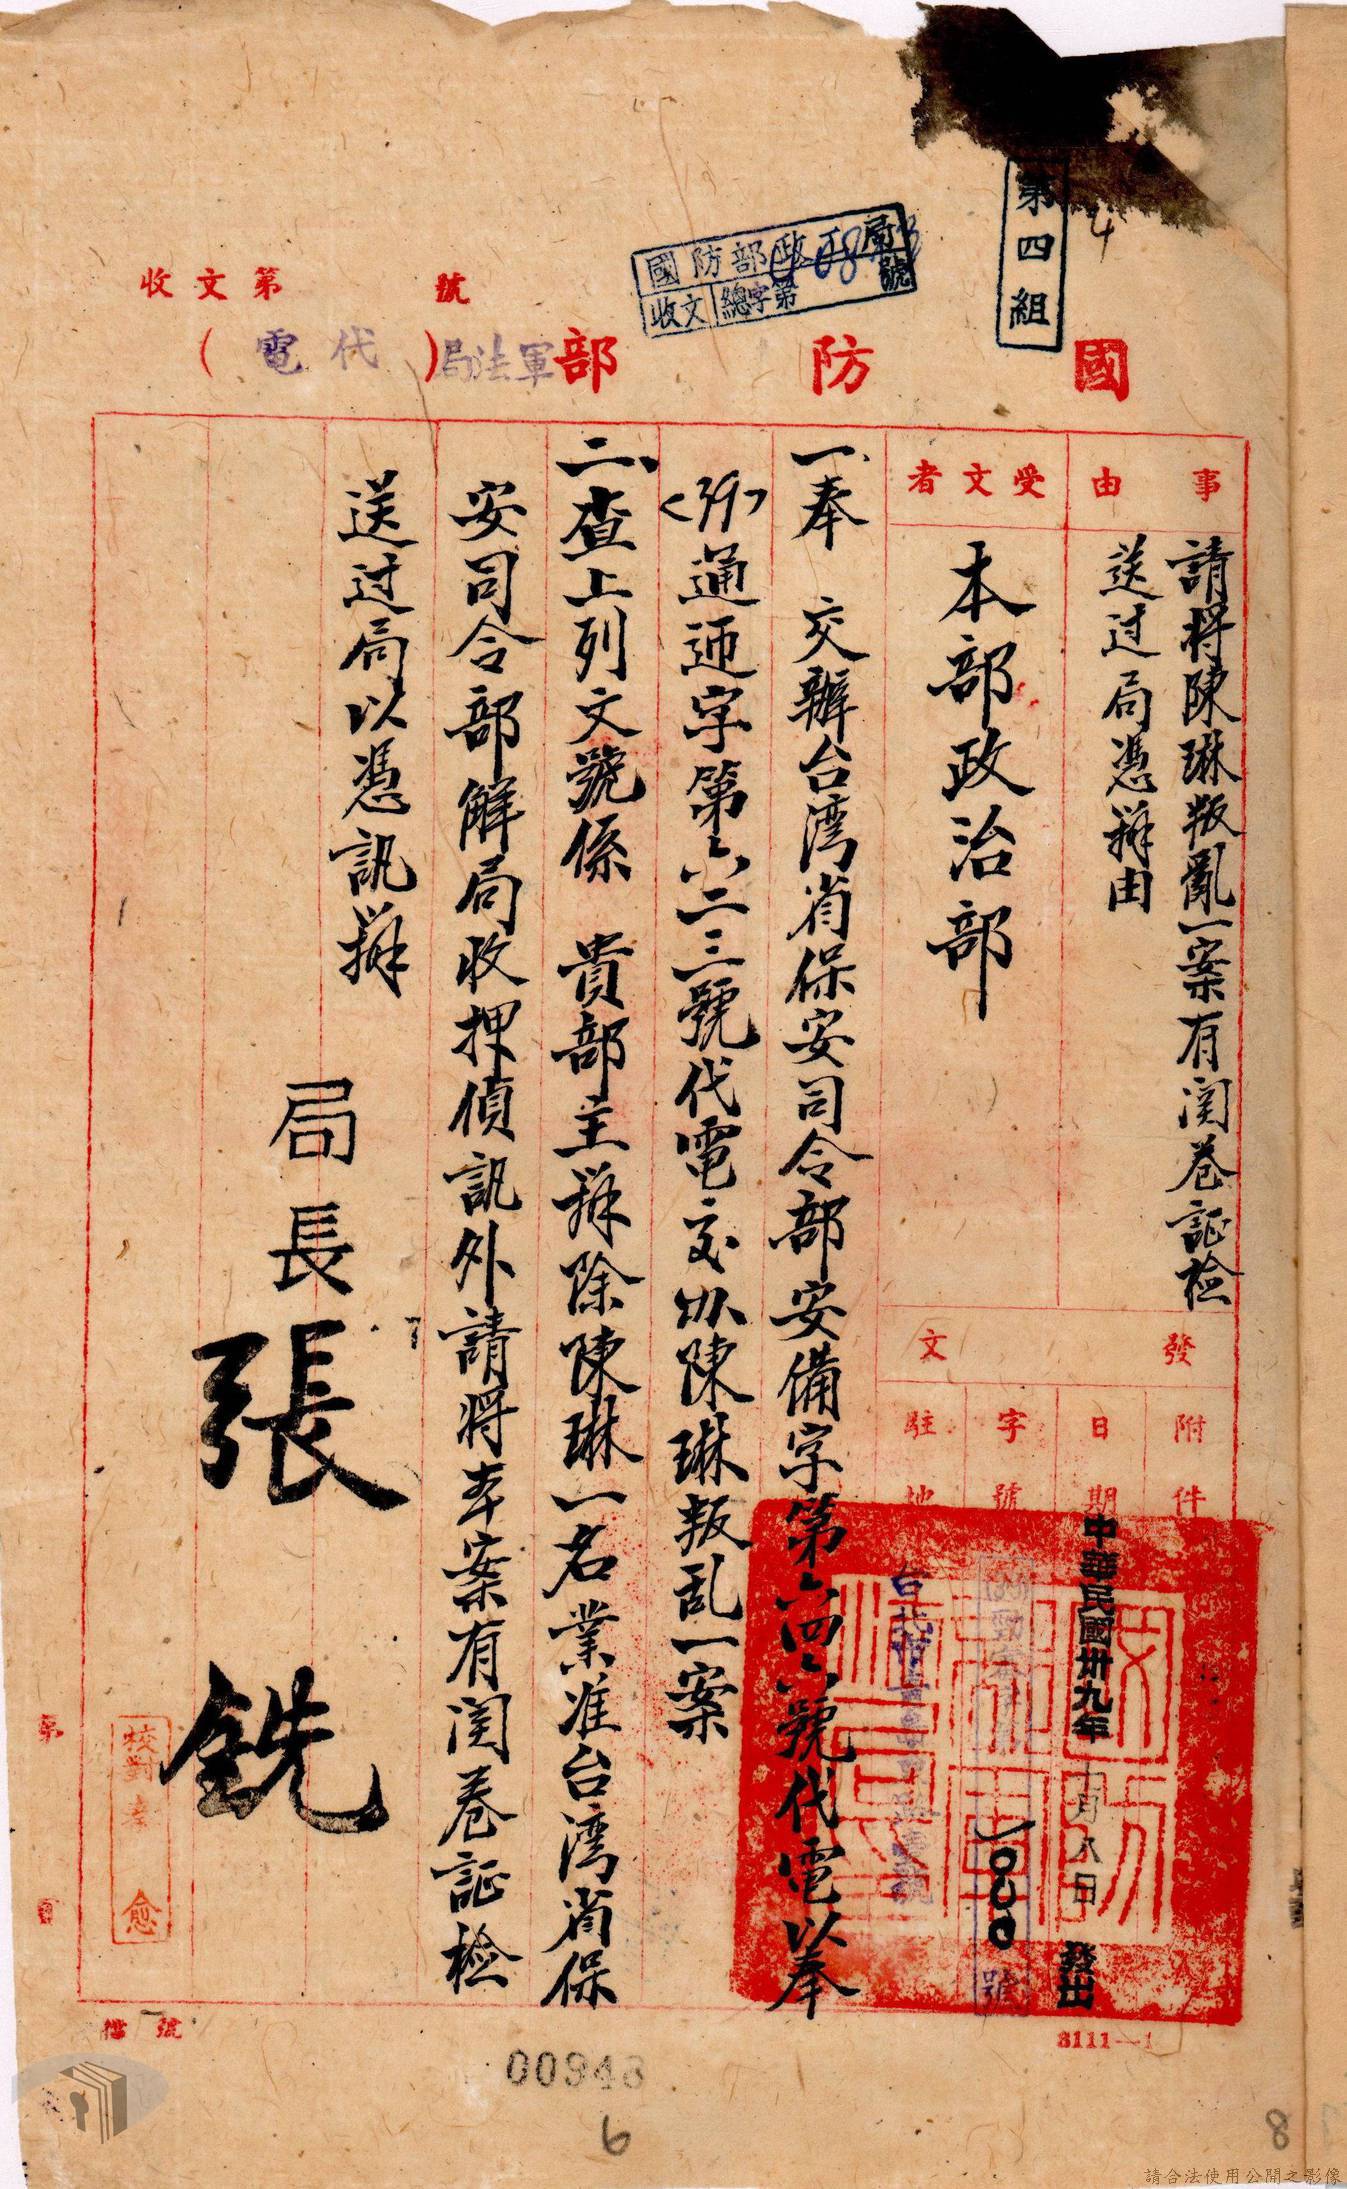 第四組
4
國防部政
局
收文
總字第
號
收文第 號
國防部軍法局(代電)
事由
請將陳琳叛亂一案有関卷証檢
送过局憑辦由
受文者
本部政治部
發文
附件
日期
中華民國卅九年十月八日發出
字號
號
駐地
台北
一、奉 交辦台湾省保安司令部安備字第六四六號代電以奉
通迊字第六二三號代電交办陳琳叛乱一案
二、查上列文號係 貴部主辦除陳琳一名業准台湾省保
安司令部解局收押偵訊外請将本案有関卷証檢
送过局以憑訊辦
局長張
銑
校對
愈
第
檔號
3111—1
00943
6
8
請合法使用公開之影像